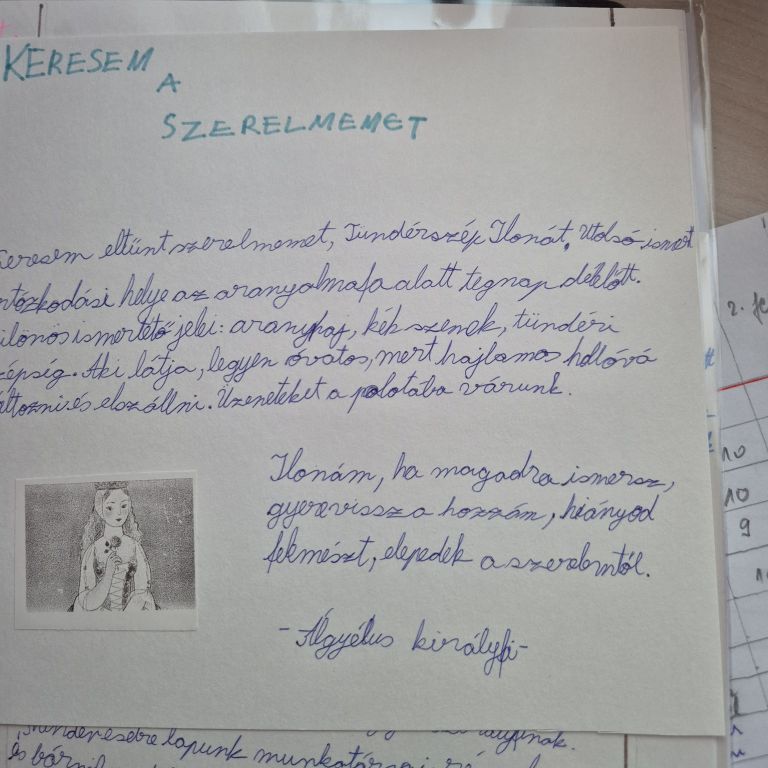 KERESEM
A
SZERELMEMET
Keresem eltűnt szerelmemet, Tündérszép Ilonát. Utolsó ismert
ntózkodási helye az aranyalmafa alatt tegnap délelőtt.
ülönös ismertető jelei: aranyhaj, kék szemek, tündéri
zépség. Aki látja, legyen óvatos, mert hajlamos hollóvá
áltozni és elszállni. Üzeneteket a palotába várunk.
Ilonám, ha magadra ismersz,
gyere vissza hozzám, hiányod
felemészt, elepedek a szerelemtől.
- Árgyélus királyfi -
lapunk munkatársai
és
2. fe
10
10
9